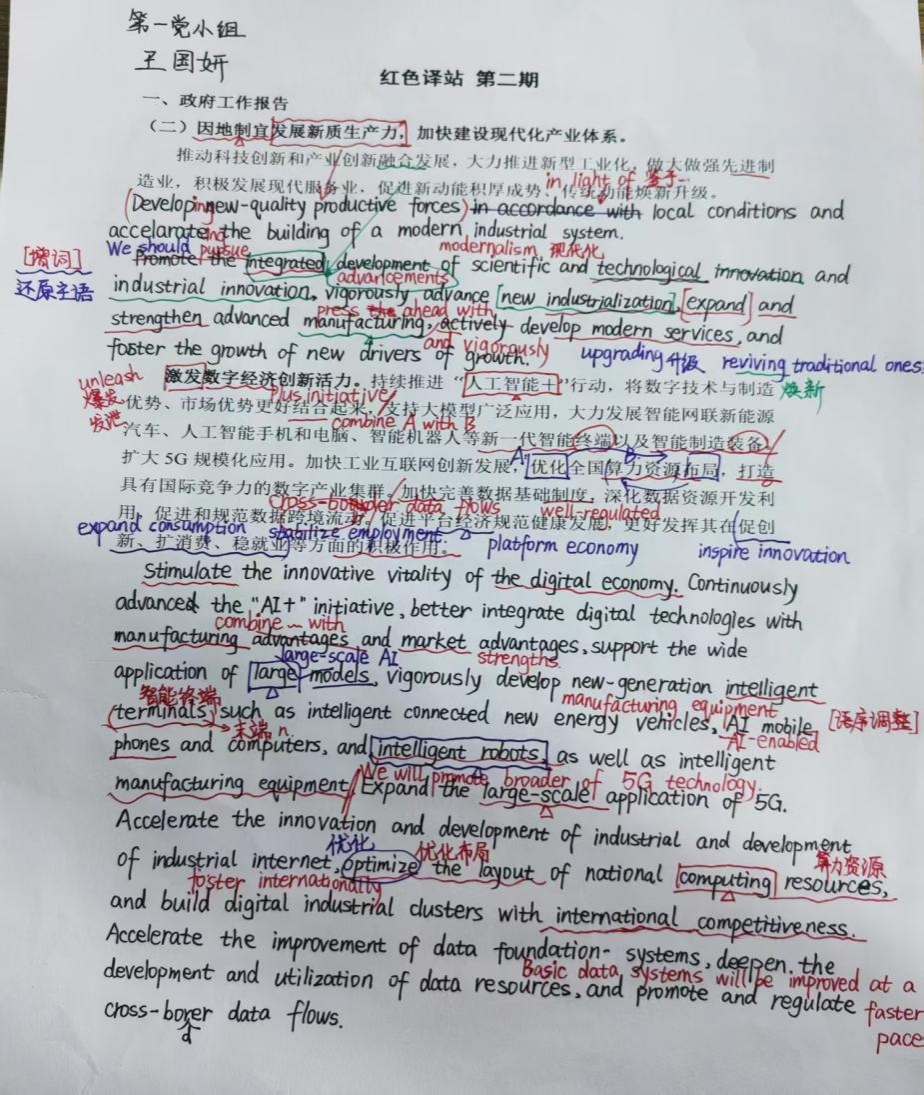 第一党小组
王国妍
红色译站 第二期
一、政府工作报告
（二）因地制宜发展新质生产力，加快建设现代化产业体系。
推动科技创新和产业创新融合发展，大力推进新型工业化，做大做强先进制
in light of 鉴于…
造业，积极发展现代服务业，促进新动能积厚成势、传统动能焕新升级。
(Developing new-quality productive forces) in accordance with local conditions and
accelarateing the building of a modern industrial system.
We should pursue
modernalism 现代化
[增词]
还原主语
Promote the integrated development of scientific and technological innovation and
advancements
industrial innovation, vigorously advance [new industrialization], [expand] and
press the ahead with
strengthen advanced manufacturing, actively develop modern services, and
and vigorously
foster the growth of new drivers of growth.
upgrading升级 reviving traditional ones
焕新
unleash
爆发
发泄
激发数字经济创新活力。持续推进“人工智能+”行动，将数字技术与制造
plus initiative
优势、市场优势更好结合起来，支持大模型广泛应用，大力发展智能网联新能源
combine A with B
汽车、人工智能手机和电脑、智能机器人等新一代智能终端以及智能制造装备。
A B
扩大 5G 规模化应用。加快工业互联网创新发展，优化全国算力资源布局，打造
具有国际竞争力的数字产业集群。加快完善数据基础制度，深化数据资源开发利
cross-border data flows well-regulated
用，促进和规范数据跨境流动。促进平台经济规范健康发展，更好发挥其在促创
expand consumption stabilize employment
新、扩消费、稳就业等方面的积极作用。
platform economy inspire innovation
Stimulate the innovative vitality of the digital economy. Continuously
advanced the "AI+" initiative, better integrate digital technologies with
combine … with
manufacturing advantages and market advantages, support the wide
large-scale AI strengths.
application of large models, vigorously develop new-generation intelligent
智能终端 manufacturing equipment
(terminals) such as intelligent connected new energy vehicles, AI mobile
[语序调整]
末端 n. AI-enabled
phones and computers, and intelligent robots, as well as intelligent
We will promote broader of 5G technology.
manufacturing equipment. Expand the large-scale application of 5G.
Accelerate the innovation and development of industrial and development
优化 优化布局 算力资源
of industrial internet, optimize the layout of national computing resources,
foster internationally
and build digital industrial clusters with international competitiveness.
Accelerate the improvement of data foundation- systems, deepen. the
Basic data systems will be improved at a
faster
pace
development and utilization of data resources, and promote and regulate
cross-borer data flows.
d